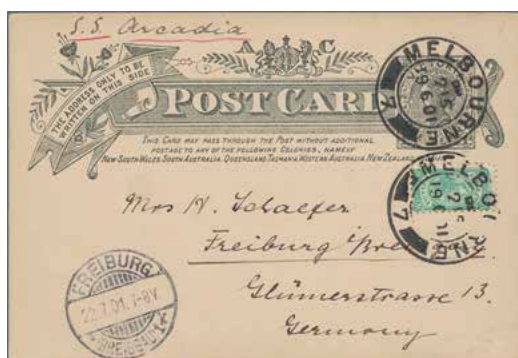 S.S. Arcadia
A C
THE ADDRESS ONLY TO BE
WRITTEN ON THIS SIDE
POST CARD
THIS CARD MAY PASS THROUGH THE POST WITHOUT ADDITIONAL
POSTAGE TO ANY OF THE FOLLOWING COLONIES, NAMELY
NEW SOUTH WALES. SOUTH AUSTRALIA. QUEENSLAND. TASMANIA. WESTERN AUSTRALIA. NEW ZEALAND
MELBOURNE
19 6 01
7
MELBOURNE
19 6 01
7
Mrs H. Schaefer
Freiburg i/
Glümerstrasse 13.
Germany
FREIBURG
22.7.01.7-8V.